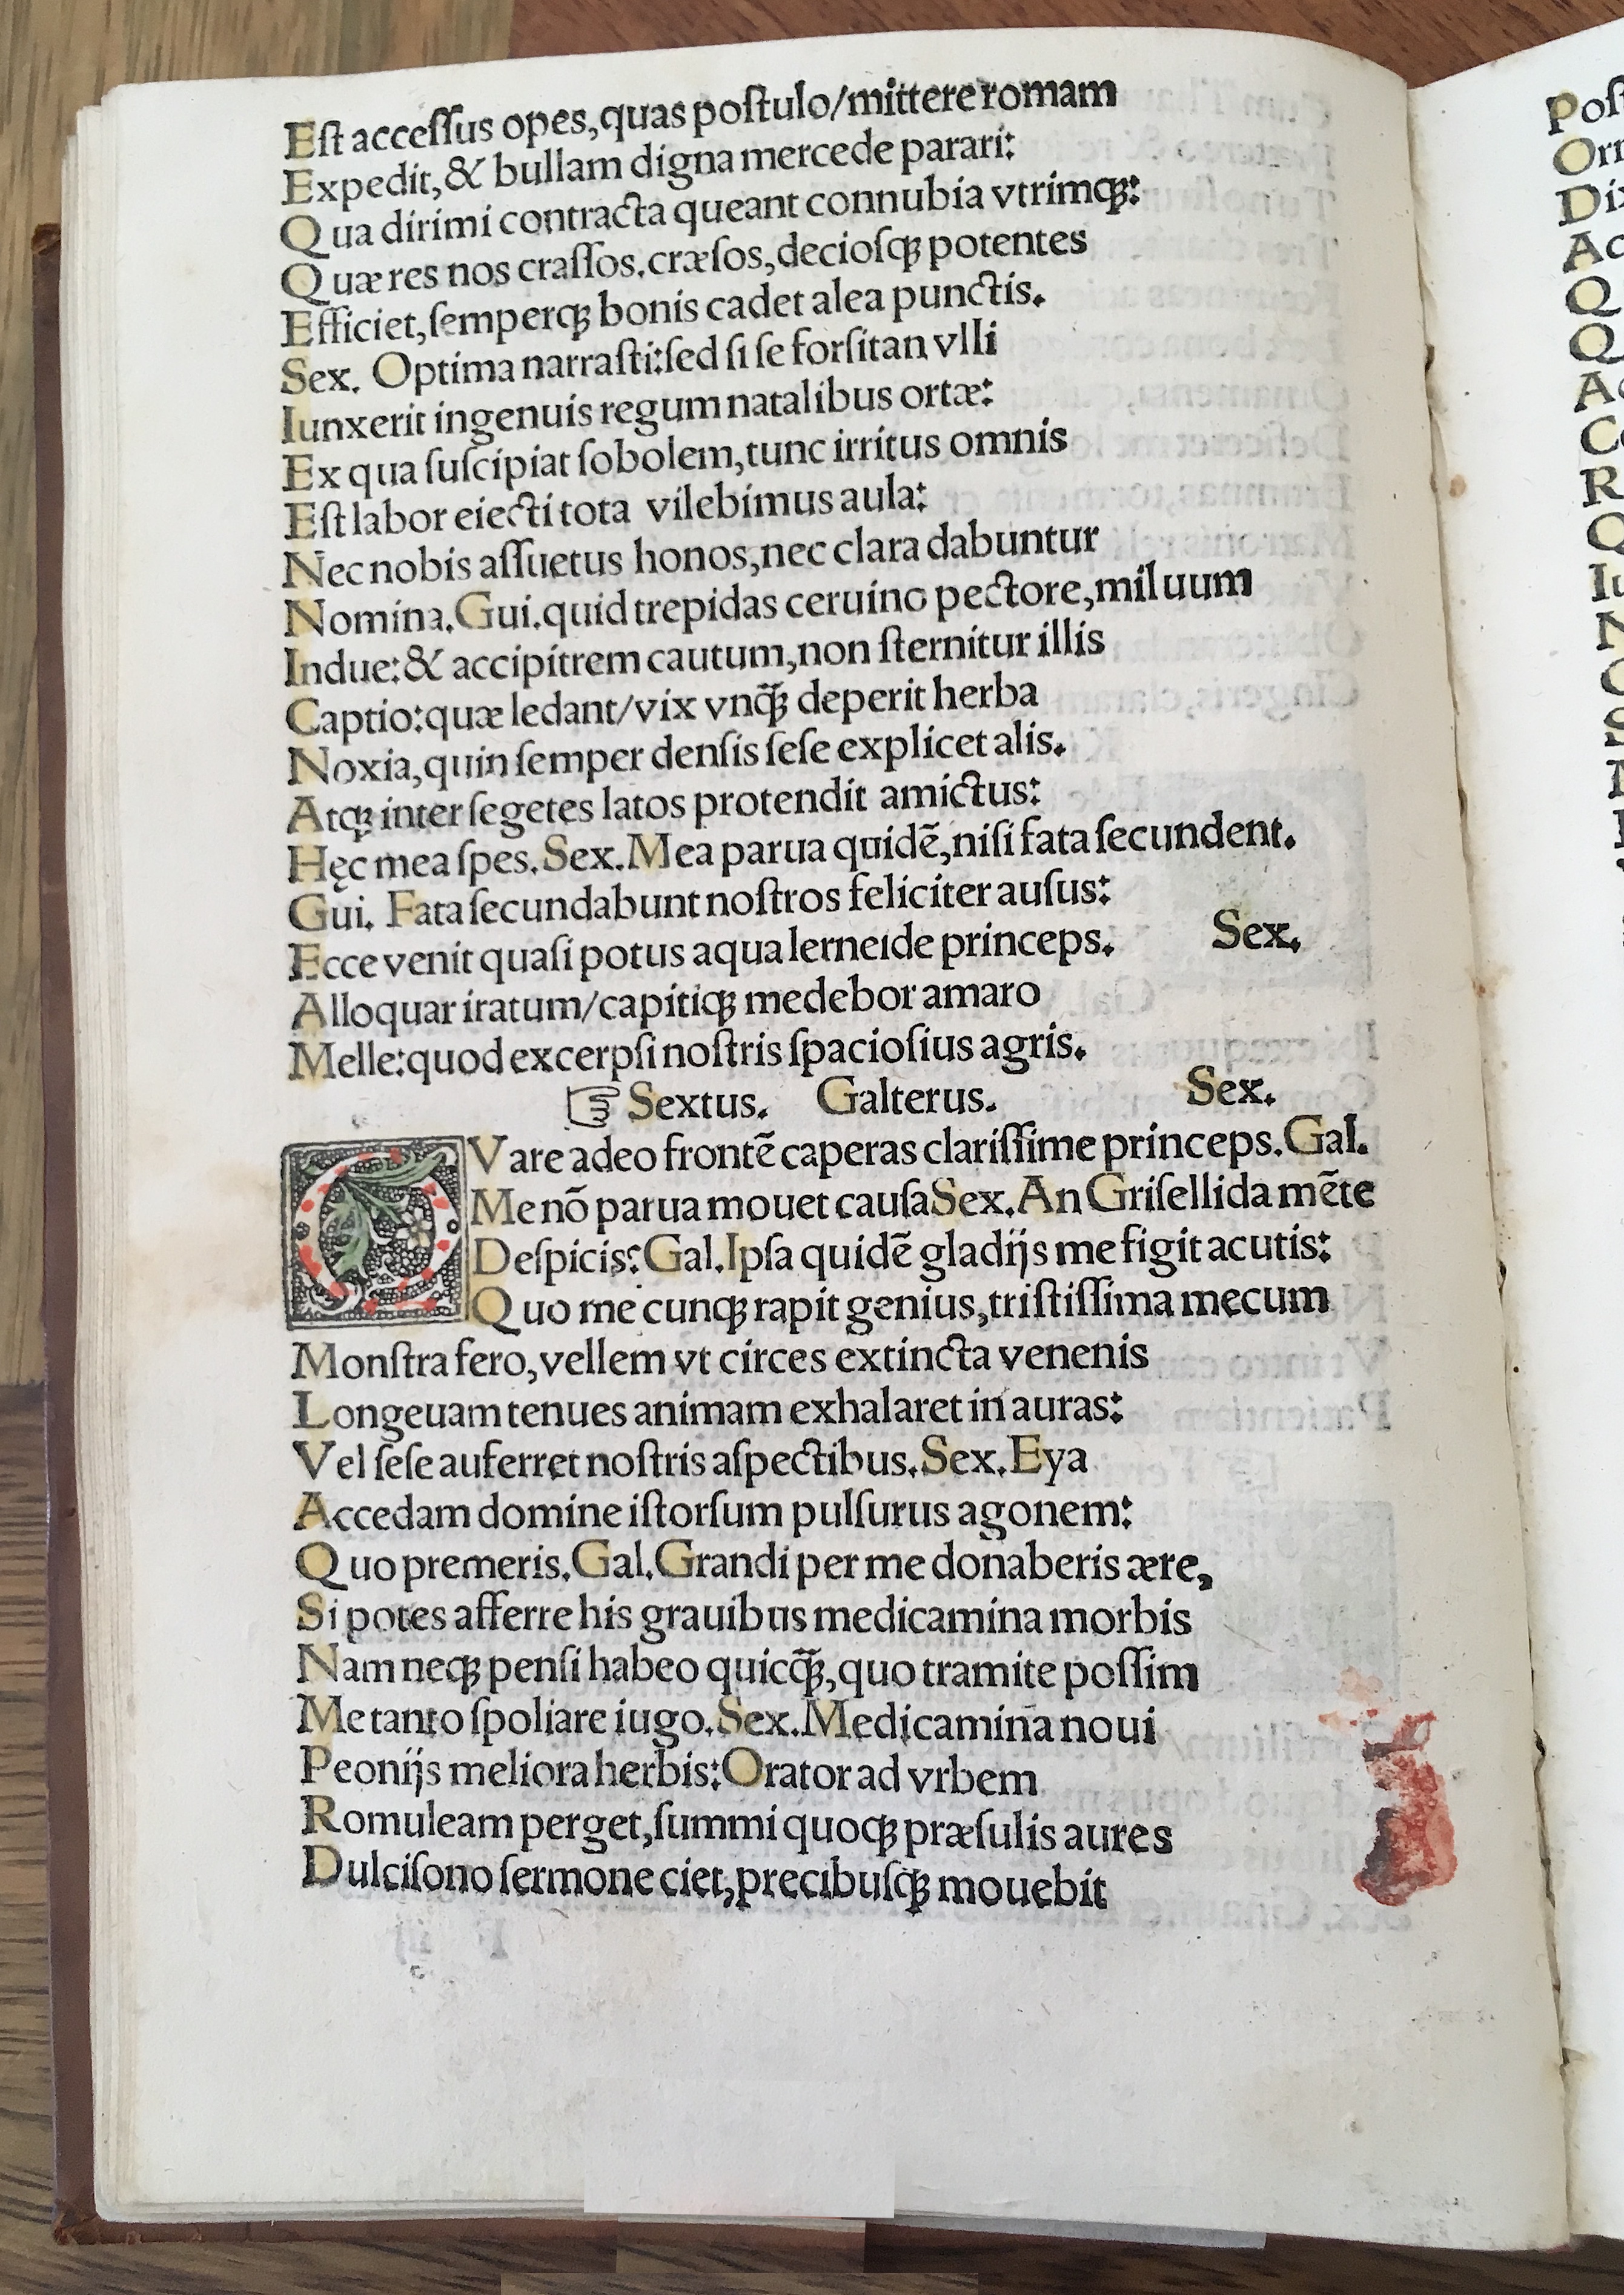 Eſt acceſſus opes,quas poſtulo/mittere romam
Expedit,& bullam digna mercede parari:
Qua dirimi contracta queant connubia vtrimqꝫ:
Quæ res nos craſſos,cræſos,decioſqꝫ potentes
Efficiet,ſemperqꝫ bonis cadet alea punctis.
Sex. Optima narraſti:ſed ſi ſe forſitan vlli
Iunxerit ingenuis regum natalibus ortæ:
Ex qua ſuſcipiat ſobolem,tunc irritus omnis
Eſt labor eiecti tota vilebimus aula:
Nec nobis aſſuetus honos,nec clara dabuntur
Nomina.Gui.quid trepidas ceruino pectore,miluum
Indue:& accipitrem cautum,non ſternitur illis
Captio:quæ ledant/vix vnqꝫ̃ deperit herba
Noxia,quin ſemper denſis ſeſe explicet alis.
Atqꝫ inter ſegetes latos protendit amictus:
Hęc mea ſpes.Sex.Mea parua quidẽ,niſi fata ſecundent.
Gui. Fata ſecundabunt noſtros feliciter auſus:
Ecce venit quaſi potus aqua lerneide princeps. Sex.
Alloquar iratum/capitiqꝫ medebor amaro
Melle:quod excerpſi noſtris ſpacioſius agris.
☞ Sextus. Galterus. Sex.
QVare adeo frontẽ caperas clariſſime princeps.Gal.
Me nõ parua mouet cauſaSex.An Griſellida mẽte
Deſpicis:Gal.Ipſa quidẽ gladijs me figit acutis:
Quo me cunqꝫ rapit genius,triſtiſſima mecum
Monſtra fero,vellem vt circes extincta venenis
Longeuam tenues animam exhalaret in auras:
Vel ſeſe auferret noſtris aſpectibus.Sex.Eya
Accedam domine iſtorſum pulſurus agonem:
Quo premeris.Gal.Grandi per me donaberis ære,
Si potes afferre his grauibus medicamina morbis
Nam neqꝫ penſi habeo quicqꝫ̃,quo tramite poſſim
Me tanto ſpoliare iugo.Sex.Medicamina noui
Peonijs meliora herbis:Orator ad vrbem
Romuleam perget,ſummi quoqꝫ præſulis aures
Dulciſono ſermone ciet,precibuſqꝫ mouebit
Poſ
Orn
Dix
Ac
Q
Q